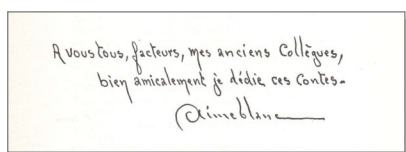 A vous tous, facteurs, mes anciens Collègues,
bien amicalement je dédie ces Contes-
Aimeblanc